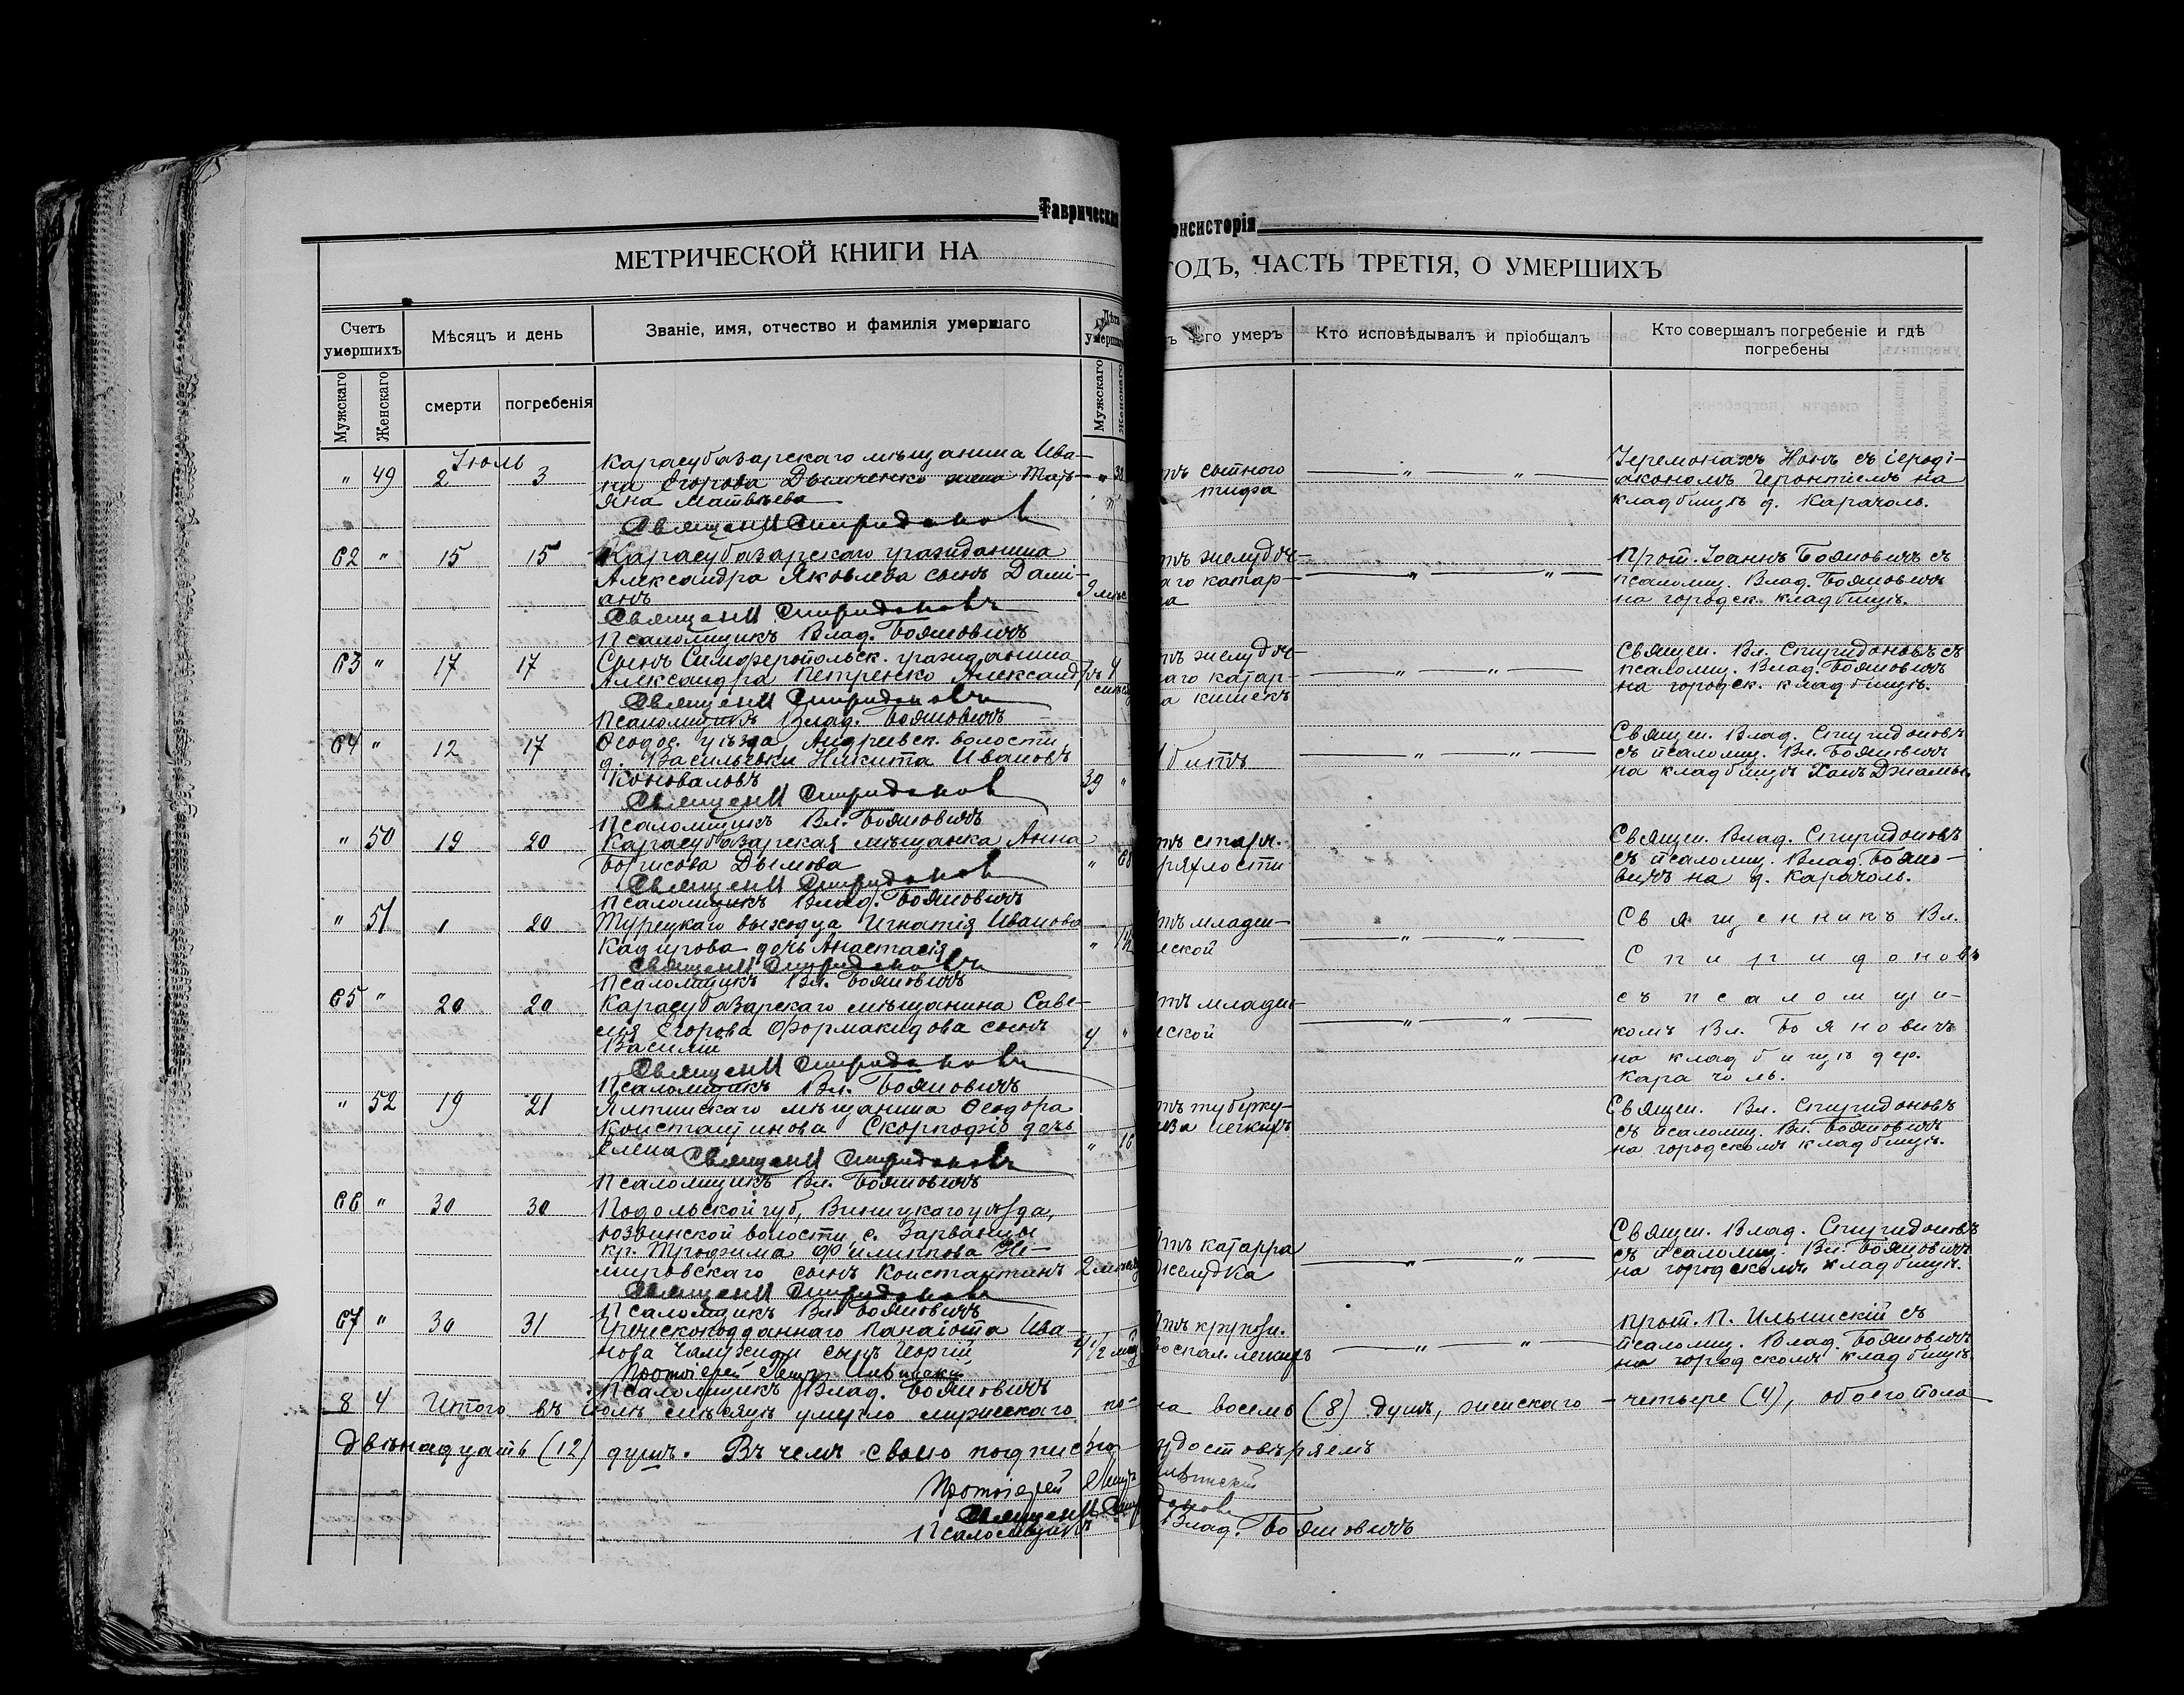 Таврическая
онсисторія
МЕТРИЧЕСКОЙ КНИГИ НА
ГОДЪ, ЧАСТЬ ТРЕТІЯ, О УМЕРШИХЪ
Счетъ умершихъ
Мѣсяцъ и день
Званіе, имя, отчество и фамилія умершаго
Лѣта
его умеръ
Кто исповѣдывалъ и пріобщалъ
Кто совершалъ погребеніе и гдѣ
погребены
Мужскаго
Женскаго
смерти
погребенія
Мужскаго
Женскаго
Іюль
" 49 2 3
Карасубазарскаго мѣщанина Ива-
на Егорова Дымченко жена Тать-
яна Матвѣева
Священ Спиридонов
тъ сыпного
тифа
Іеромонахъ Нонъ съ іероді-
акономъ Геронтіемъ на
кладбищѣ д. Карачоль.
62 " 15 15
Карасубазарскаго гражданина
Александра Яковлева сынъ Дамі-
анъ
9 мѣс
Священ Спиридоновъ
Псаломщикъ Влад. Бояновичъ
тъ желудоч-
аго катар-
а
Прот. Іоаннъ Бояновичъ съ
псаломщ. Влад. Бояновичъ
на городск. кладбищѣ.
63 " 17 17
Сынъ Симферопольск. гражданина
Александра Петренко Александръ 4
Священ Спиридоновъ
Псаломщикъ Влад. Бояновичъ
тъ желудоч-
аго катар-
а кишекъ
Священ. Вл. Спиридоновъ съ
псаломщ. Влад. Бояновичъ
на городск. кладбищѣ.
64 " 12 17
Ѳеодос. уѣзда, Андреевск. волости
д. Васильевки Никита Ивановъ
Коноваловъ
39 "
Священ Спиридонов
Псаломщикъ Вл. Бояновичъ
Убитъ
Священ. Влад. Спиридоновъ
съ псаломщ. Вл. Бояновичъ
на кладбищѣ
" 50 19 20
Карасубазарская мѣщанка Анна
Борисова Дымова
" 68
Священ Спиридонов
Псаломщикъ Влад. Бояновичъ
тъ старч.
ряхлости
Священ. Влад. Спиридоновъ
съ псаломщ. Влад. Бояно-
вичъ на д. Карачоль.
" 51 1 20
Турецкаго выходца Игнатія Иванова
Кадирова дочь Анастасія
Священ Спиридоновъ
Псаломщикъ Вл. Бояновичъ
тъ младен-
ской
Священникъ Вл.
Спиридоновъ
65 " 20 20
Карасубазарскаго мѣщанина Саве-
лія Егорова Формакидова сынъ
Василій
4 "
Священ Спиридоновъ
Псаломщикъ Вл. Бояновичъ
тъ младен-
ской
съ псаломщи-
комъ Вл. Бояновичъ
на кладбищѣ дер.
Карачоль.
" 52 19 21
Ялтинскаго мѣщанина Ѳеодора
Константинова Скорпофіо дочь
Елена
" 16
Священ Спиридоновъ
Псаломщикъ Вл. Бояновичъ
тъ туберку-
леза легкихъ
Священ. Вл. Спиридоновъ
съ псаломщ. Вл. Бояновичъ
на городскомъ кладбищѣ.
66 " 30 30
Подольской губ, Винницкаго уѣзда,
Юзвинской волости, с. Зарванцы
кр. Трофима Филиппова Не-
мировскаго сынъ Константинъ
Священ Спиридонов
Псаломщикъ Вл. Бояновичъ
тъ катарра
желудка
Священ. Влад. Спиридоновъ
съ псаломщ. Вл. Бояновичъ
на городскомъ кладбищѣ.
67 " 30 31
Греческоподданнаго Панаіота Ива-
нова сынъ Георгій
Протоіерей Петръ Ильинскій
Псаломщикъ Влад. Бояновичъ
тъ крупозн.
воспал. легкихъ
прот. П. Ильинскій съ
псаломщ. Влад. Бояновичъ
на городскомъ кладбищѣ.
8 4 Итого въ іюлѣ мѣсяцѣ умерло мужескаго по-ла восемь (8) душъ, женскаго - четыре (4), обоего пола
двѣнадцать (12) душъ. Въ чемъ своею подписью удостовѣряемъ
Протоіерей Петръ Ильинскій
Священ Спиридонов
Псаломщикъ Влад. Бояновичъ